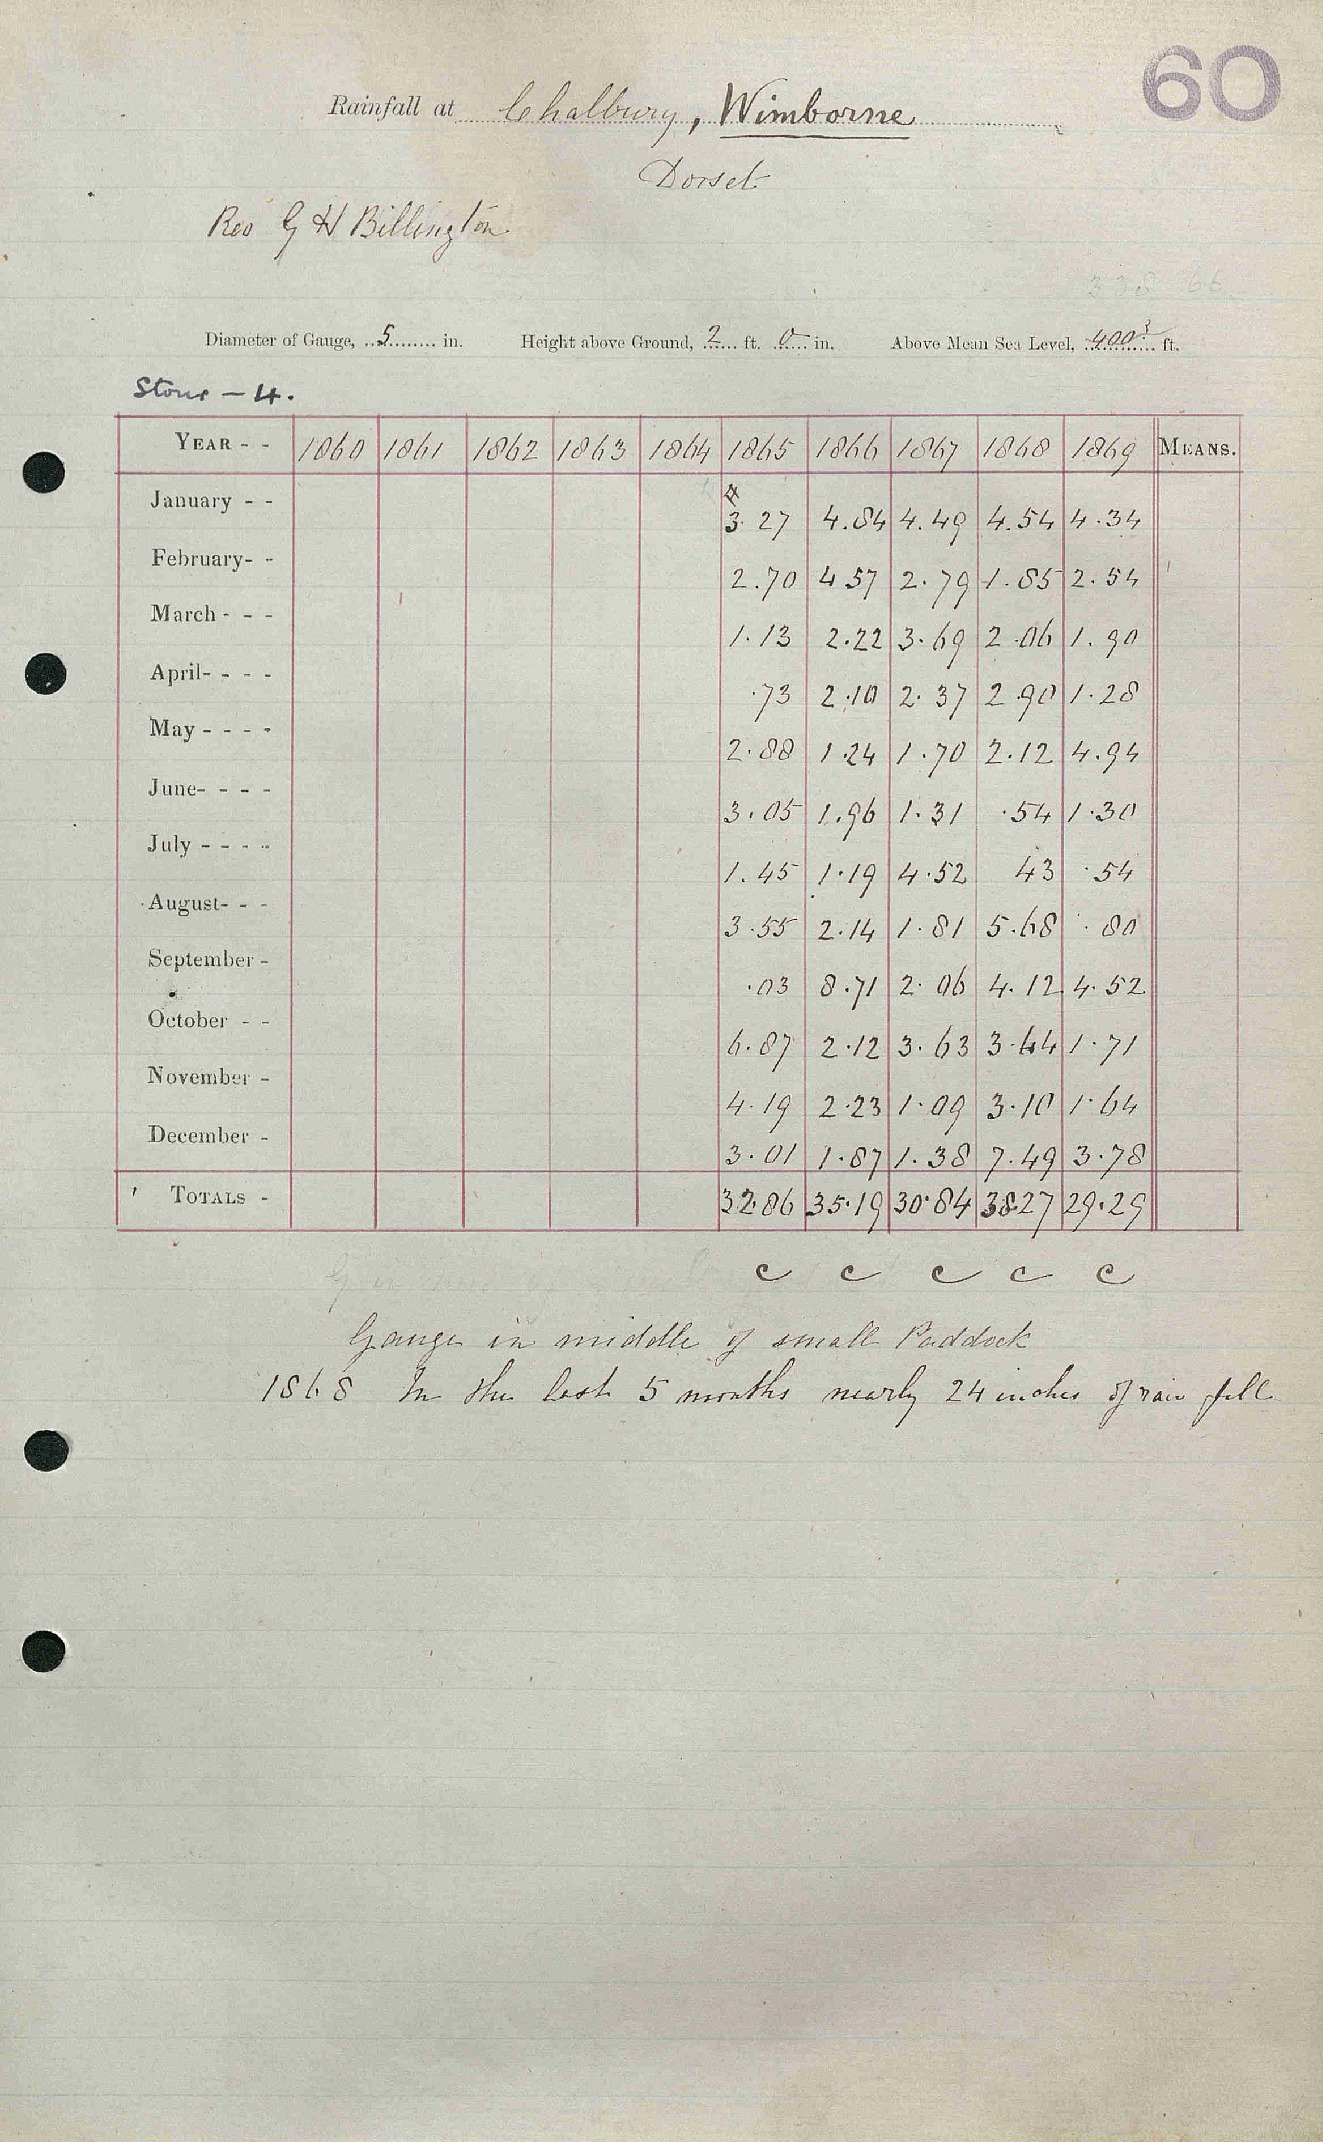 60
Rainfall at Chalbury, Wimborne
Dorset
Rev G H Billington
Diameter of Gauge, 5 in. Height above Ground, 2 ft. 0 in. Above Mean Sea Level, 400? ft.
Stour – 4.
YEAR - - 1860 1861 1862 1863 1864 1865 1866 1867 1868 1869 MEANS.
January - - 3.27 4.84 4.49 4.54 4.34
February- - 2.70 4 57 2.79 1.85 2.54
March - - - 1.13 2.22 3.69 2.06 1.90
April- - - - .73 2.10 2.37 2.90 1.28
May - - - - 2.88 1.24 1.70 2.12 4.94
June- - - - 3.05 1.96 1.31 .54 1.30
July - - - - 1.45 1.19 4.52 43 .54
August- - - 3.55 2.14 1.81 5.68 .80
September - .03 8.71 2.06 4.12 4.52
October - - 6.87 2.12 3.63 3.44 1.71
November - 4.19 2.23 1.09 3.10 1.64
December - 3.01 1.87 1.38 7.49 3.78
TOTALS - 32.86 35.19 30.84 38.27 29.29
c c c c c
Gauge in middle of small Paddock
1868 In the last 5 months nearly 24 inches of rain fell